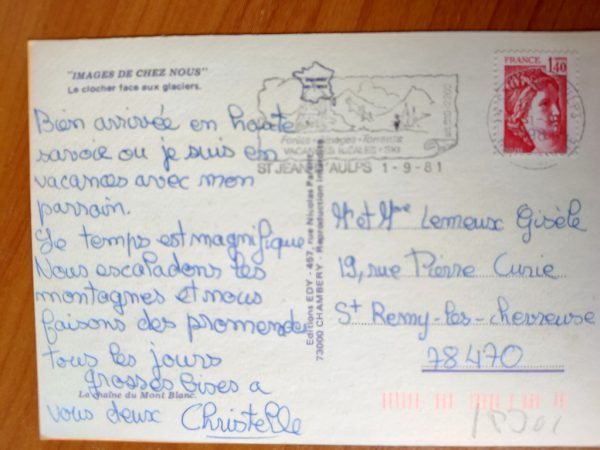 "IMAGES DE CHEZ NOUS"
Le clocher face aux glaciers.
Bien arrivée en haute
savoie ou je suis en
vacances avec mon
parrain.
Le temps est magnifique
Nous escaladons les
montagnes et nous
faisons des promenades
tous les jours
grosses bises a
vous deux Christelle
La chaîne du Mont Blanc.
Editions EDY - 457, rue Nicolas Parent
73000 CHAMBERY - Reproduction interdite
FRANCE
1,40
Forêts - Alpages - Torrents
VACANCES IDÉALES - SKI
ST JEAN D'AULPS 1-9-81
Mr et Mme Lemeux Gisèle
19, rue Pierre Curie
St Remy-les-chevreuse
78470